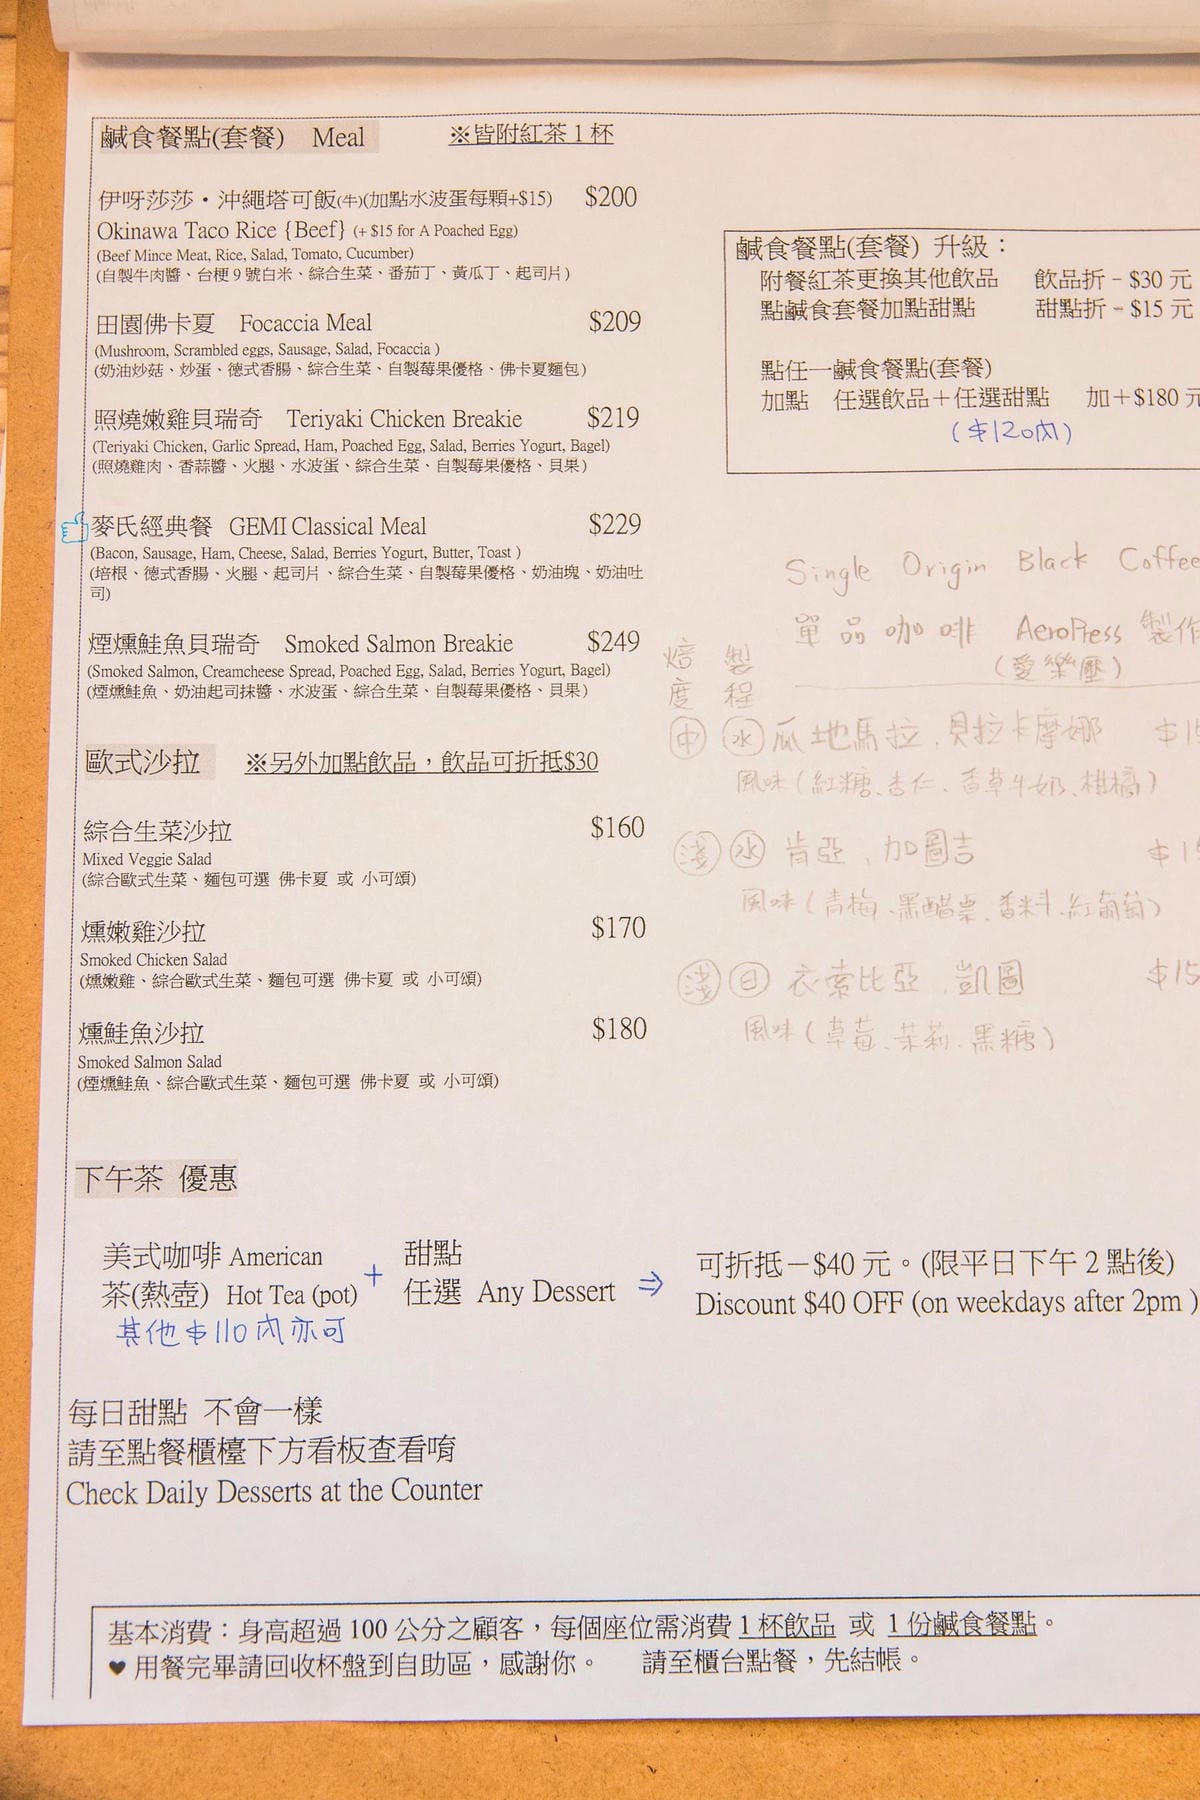 鹹食餐點(套餐) Meal ※皆附紅茶 1 杯
伊呀莎莎・沖繩塔可飯(牛)(加點水波蛋每顆+$15) $200
Okinawa Taco Rice {Beef} (+ $15 for A Poached Egg)
(Beef Mince Meat, Rice, Salad, Tomato, Cucumber)
(自製牛肉醬、台梗 9 號白米、綜合生菜、番茄丁、黃瓜丁、起司片)
田園佛卡夏 Focaccia Meal $209
(Mushroom, Scrambled eggs, Sausage, Salad, Focaccia )
(奶油炒菇、炒蛋、德式香腸、綜合生菜、自製莓果優格、佛卡夏麵包)
照燒嫩雞貝瑞奇 Teriyaki Chicken Breakie $219
(Teriyaki Chicken, Garlic Spread, Ham, Poached Egg, Salad, Berries Yogurt, Bagel)
(照燒雞肉、香蒜醬、火腿、水波蛋、綜合生菜、自製莓果優格、貝果)
麥氏經典餐 GEMI Classical Meal $229
(Bacon, Sausage, Ham, Cheese, Salad, Berries Yogurt, Butter, Toast )
(培根、德式香腸、火腿、起司片、綜合生菜、自製莓果優格、奶油塊、奶油吐
司)
煙燻鮭魚貝瑞奇 Smoked Salmon Breakie $249
(Smoked Salmon, Creamcheese Spread, Poached Egg, Salad, Berries Yogurt, Bagel)
(煙燻鮭魚、奶油起司抹醬、水波蛋、綜合生菜、自製莓果優格、貝果)
歐式沙拉 ※另外加點飲品，飲品可折抵$30
綜合生菜沙拉 $160
Mixed Veggie Salad
(綜合歐式生菜、麵包可選 佛卡夏 或 小可頌)
燻嫩雞沙拉 $170
Smoked Chicken Salad
(燻嫩雞、綜合歐式生菜、麵包可選 佛卡夏 或 小可頌)
燻鮭魚沙拉 $180
Smoked Salmon Salad
(煙燻鮭魚、綜合歐式生菜、麵包可選 佛卡夏 或 小可頌)
鹹食餐點(套餐) 升級：
附餐紅茶更換其他飲品 飲品折－$30 元
點鹹食套餐加點甜點 甜點折－$15 元
點任一鹹食餐點(套餐)
加點 任選飲品＋任選甜點 加＋$180 元
($120內)
Single Origin Black Coffee
單品咖啡 AeroPress 製作
(愛樂壓)
焙度 製程
中 水 瓜地馬拉、貝拉卡摩娜
風味(紅糖、杏仁、香草牛奶、柑橘)
淺 水 肯亞、加圖吉
風味(青梅、黑醋栗、香料、紅葡萄)
淺 日 衣索比亞、凱圖 $15
風味(草莓、茉莉、黑糖)
下午茶 優惠
美式咖啡 American
茶(熱壺) Hot Tea (pot)
其他$110內亦可
+
甜點
任選 Any Dessert
⇒
可折抵－$40 元。(限平日下午 2 點後)
Discount $40 OFF (on weekdays after 2pm )
每日甜點 不會一樣
請至點餐櫃檯下方看板查看唷
Check Daily Desserts at the Counter
基本消費：身高超過 100 公分之顧客，每個座位需消費 1 杯飲品 或 1 份鹹食餐點。
♥ 用餐完畢請回收杯盤到自助區，感謝你。 請至櫃台點餐，先結帳。